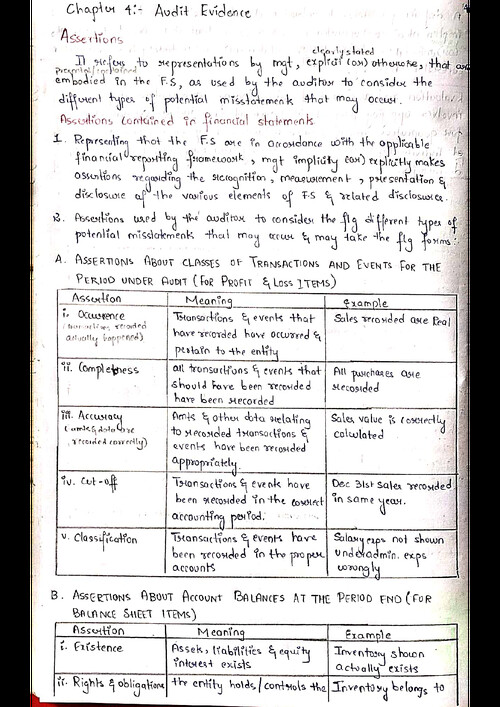 Chapter 4:- Audit Evidence
Assertions
clearly stated
It refers to representations by mgt, explicit (or) otherwise, that are
embodied in the F.S, as used by the auditor to consider the
different types of potential misstatements that may occur.
Assertions contained in financial statements
1. Representing that the F.S are in accordance with the applicable
financial reporting framework, mgt implicitly (or) explicitly makes
assertions regarding the recognition, measurement, presentation &
disclosure of the various elements of F.S & related disclosures.
2. Assertions used by the auditor to consider the flg different types of
potential misstatements that may occur & may take the flg forms:
A. ASSERTIONS ABOUT CLASSES OF TRANSACTIONS AND EVENTS FOR THE
PERIOD UNDER AUDIT (FOR PROFIT & LOSS ITEMS)
Assertion Meaning Example
i. Occurence Transactions & events that Sales recorded are Real
(transactions recorded have recorded have occurred &
actually happened) pertain to the entity
ii. Completness all transactions & events that All purchases are
should have been recorded recorded
have been recorded
iii. Accuracy Amts & other data relating Sales value is correctly
(amts & data are to recorded transactions & calculated
recorded correctly) events have been recorded
appropriately.
iv. Cut-off Transactions & events have Dec 31st sales recorded
been recorded in the correct in same year.
accounting period.
v. Classification Transactions & events have Salary exps not shown
been recorded in the proper under admin. exps
accounts wrongly
B. ASSERTIONS ABOUT ACCOUNT BALANCES AT THE PERIOD END (FOR
BALANCE SHEET ITEMS)
Assertion Meaning Example
i. Existence Assets, liabilities & equity Inventory shown
interest exists actually exists
ii. Rights & obligations the entity holds/controls the Inventory belongs to